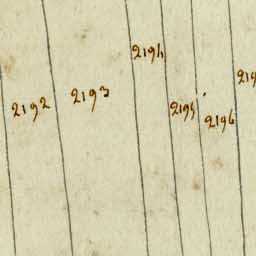 2192 2193 2194 2195 2196